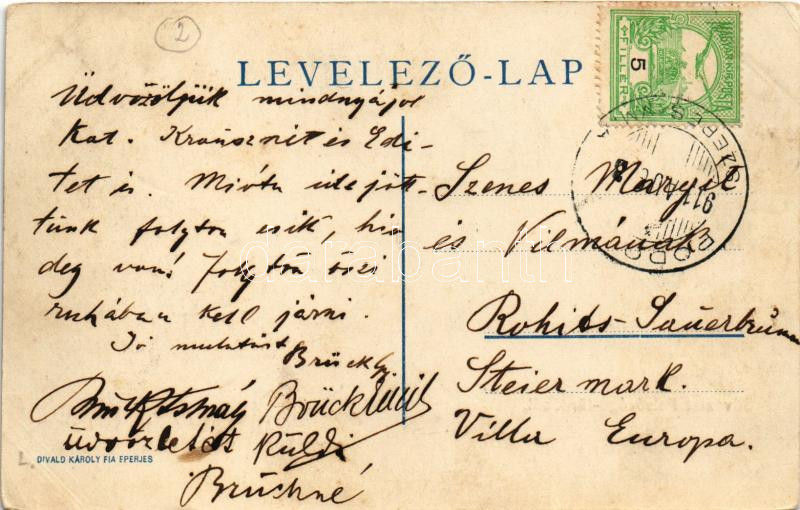 2
LEVELEZŐ-LAP
MAGYAR KIR. POSTA
5
FILLÉR
911 AUG
Üdvözöljük mindnyájol
Kat. Krausznét és Edi-
tet is. Mióta ide jöt-
tünk folyton esik, hi
deg van! Folyton őszi
ruhában kell járni.
Jó mulatást
Brück
Brück
üdvözletét küldi
Brückné
Szenes Margit
és Vilmának
Rohits-Sauerbrunn
Steiermark.
Villa Europa.
L.
DIVALD KÁROLY FIA EPERJES
darabanth